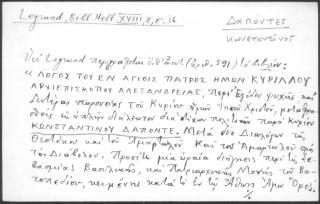 Legrand, Bibl. Hell. XVIII, 2, σ. 16
ΔΑΠΟΝΤΕΣ
Κωνσταντίνος
Legrand περιγράφεται (ἀρ. 591) τὸ βιβλίον:
"ΛΟΓΟΣ ΤΟΥ ΕΝ ΑΓΙΟΙΣ ΠΑΤΡΟΣ ΗΜΩΝ ΚΥΡΙΛΛΟΥ
ΑΡΧΙΕΠΙΣΚΟΠΟΥ ΑΛΕΞΑΝΔΡΕΙΑΣ, Περὶ Ἐξόδου ψυχῆς καὶ
δευτέρας παρουσίας τοῦ Κυρίου ἡμῶν Ἰησοῦ Χριστοῦ, μεταφρα-
σθεὶς εἰς ἁπλῆν διάλεκτον διὰ στίχων πολιτικῶν παρὰ Κυρίου
ΚΩΝΣΤΑΝΤΙΝΟΥ ΔΑΠΟΝΤΕ. Μετὰ δύο Διαλόγων τῆς
Θεοτόκου καὶ τοῦ Ἁμαρτωλοῦ. Καὶ τοῦ Ἁμαρτωλοῦ ἀπὸ
τὸν Διάβολον. Προσέτι μία ὡραία διήγησις περὶ τῆς σε-
βασμίας Βασιλικῆς, καὶ Πατριαρχικῆς Μονῆς τοῦ Βα-
τοπεδίου, κειμένης κατὰ τὸ ἐν τῷ Ἄθωνι Ἅγιον Ὄρος.